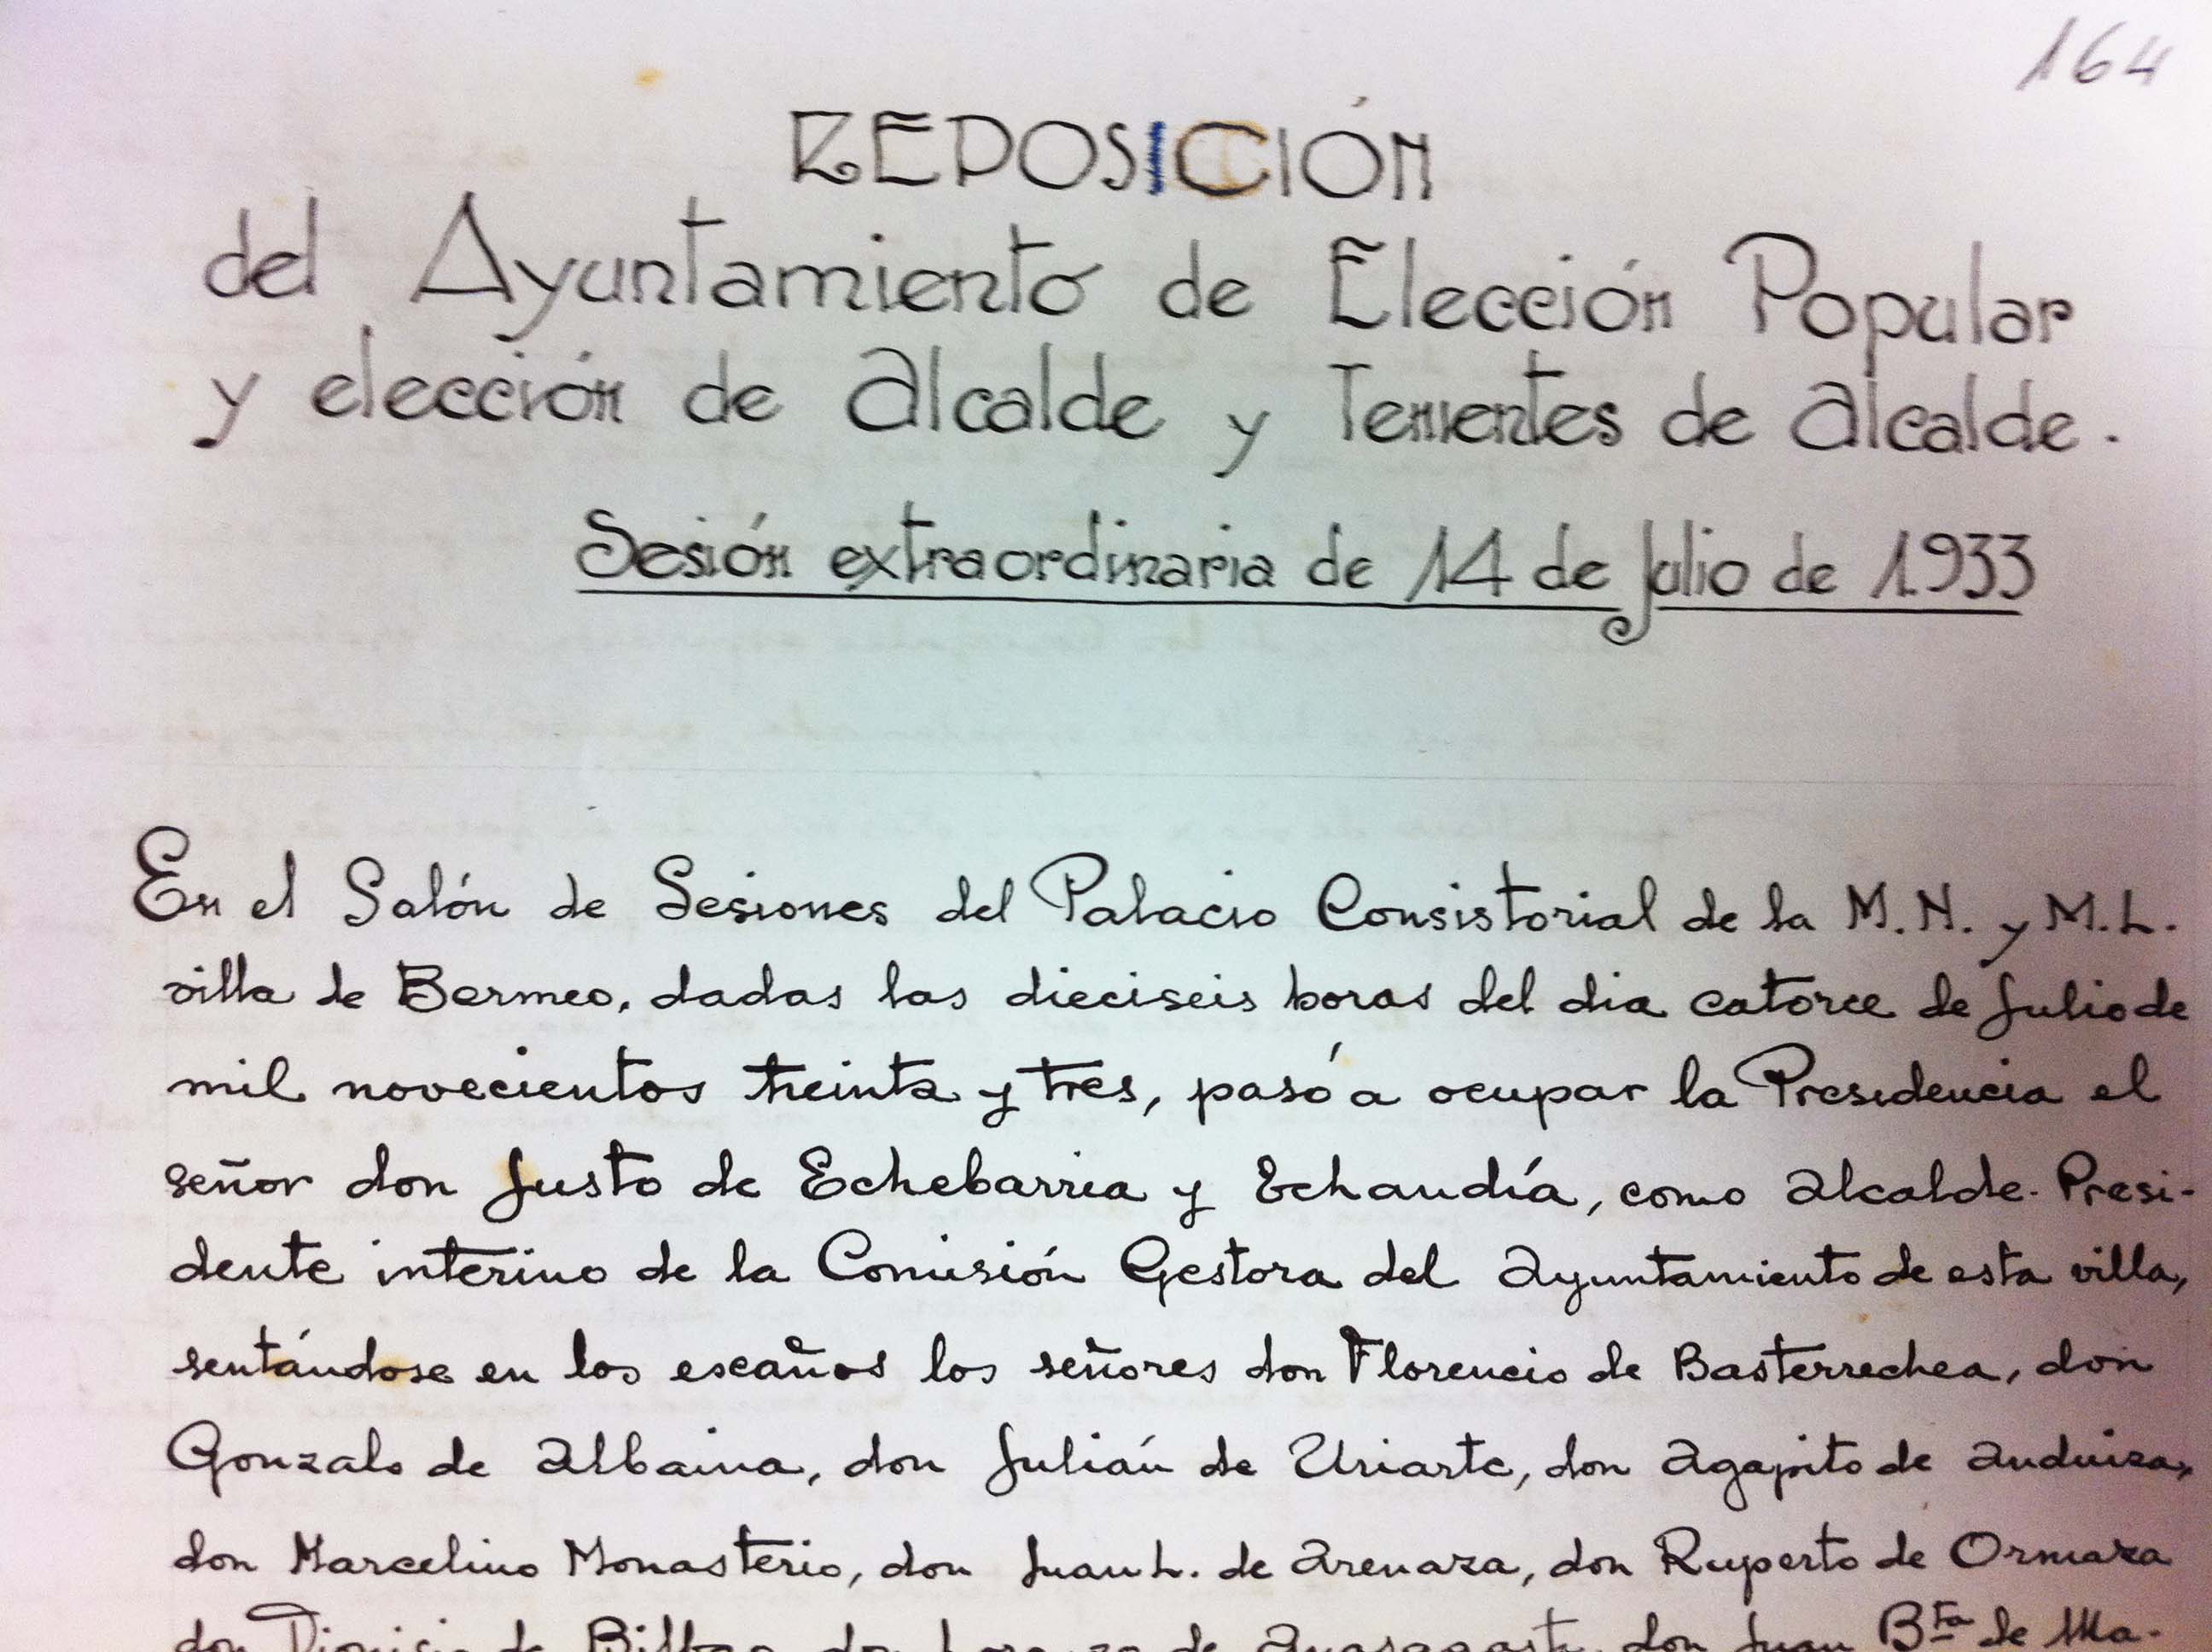 164
REPOSICIÓN
del Ayuntamiento de Elección Popular
y elección de Alcalde y Tenientes de Alcalde.
Sesión extraordinaria de 14 de Julio de 1933
En el Salón de Sesiones del Palacio Consistorial de la M.N. y M.L.
villa de Bermeo, dadas las dieciseis horas del dia catorce de Julio de
mil novecientos treinta y tres, pasó a ocupar la Presidencia el
señor don Justo de Echebarria y Echaudía, como Alcalde-Presi-
dente interino de la Comisión Gestora del Ayuntamiento de esta villa,
sentándose en los escaños los señores don Florencio de Basterrechea, don
Gonzalo de Albaina, don Julián de Uriarte, don Agapito de Anduiza,
don Marcelino Monasterio, don Juan L. de Arenaza, don Ruperto de Ormaza
don Dionisio de Bilbao, don Lorenzo de don Juan Bta de Ma-